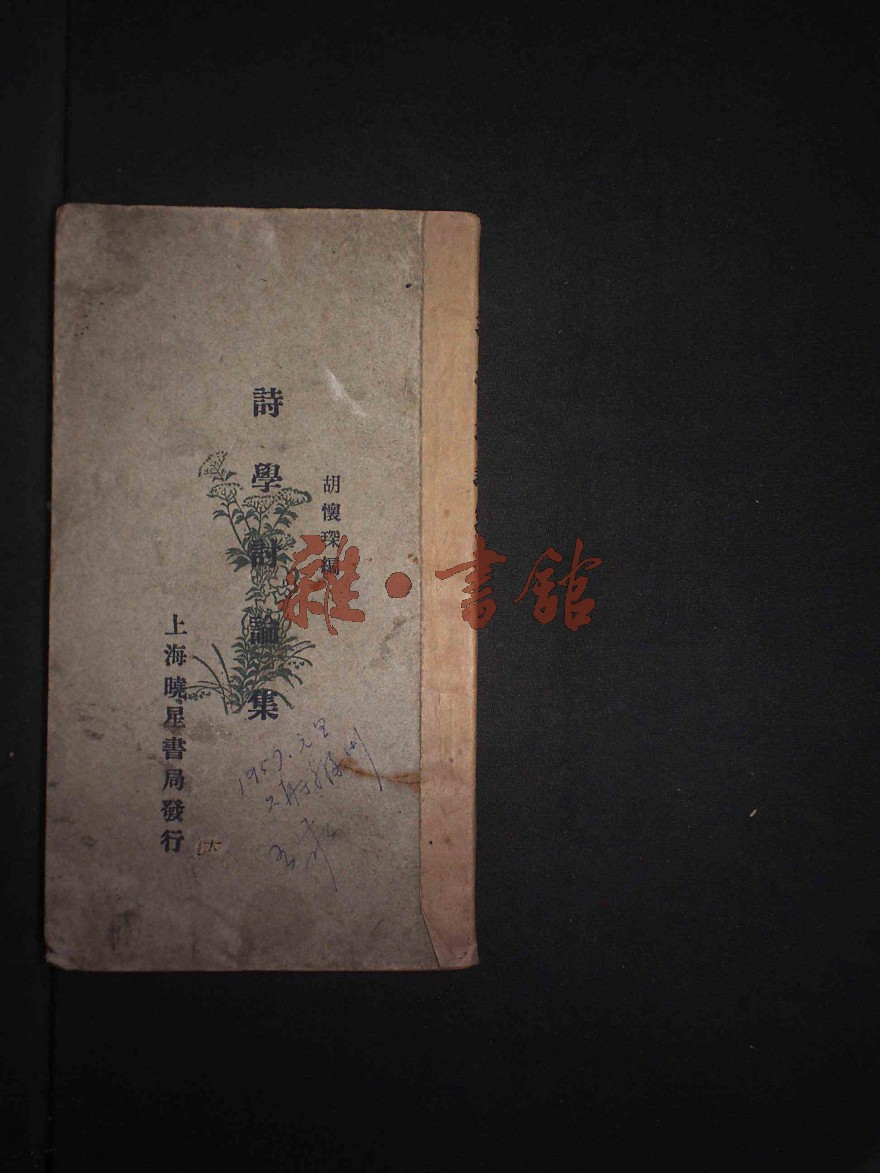 胡懷琛編
詩學討論集
上海曉星書局發行
1957.元旦
雜·書館